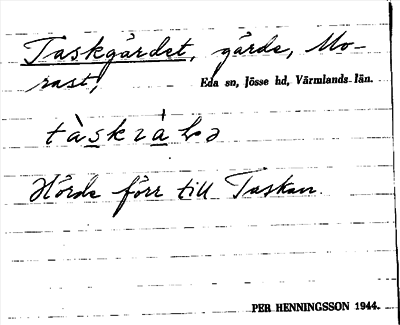 Taskgärdet, gärde, Mo-
rast,
Eda sn, Jösse hd, Värmlands län.
Hörde förr till Taskan.
PER HENNINGSSON 1944.